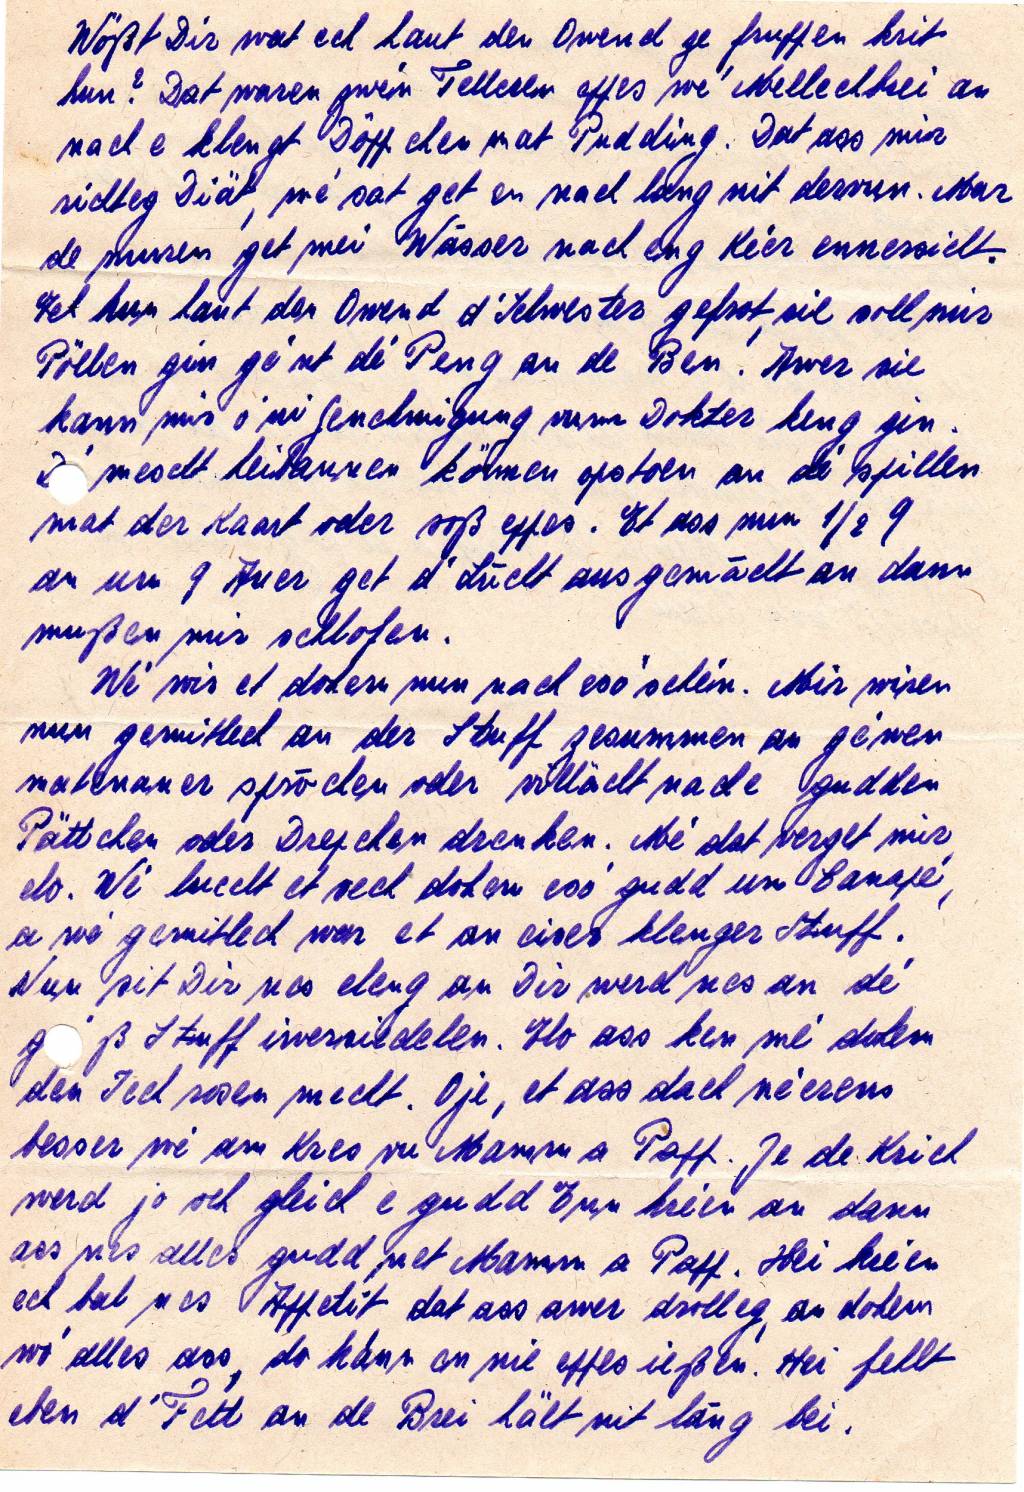 Wößt Dir wat ech haut den Owend ze fruffen krit
hun? Dat waren zwéin Telleren eppes wé Mellechbrei an
nach e klengt Döppchen mat Pudding. Dat ass mir
richteg Diät, wé sat get en nach lang nit dervun. Mar
de muren get mei Wässer nach eng Kéier ennersicht.
Ech hun haut den Owend d'Schwester gefrot, sie soll mir
Pöllen gin géint dé Peng an de Ben. Awer sie
kann mir o'ni Genehmigung vum Dokter keng gin.
mat der Kaart oder soß eppes. Et ass nun 1/2 9
an um 9 Auer get d'Lücht ausgemācht an dann
mußen mir schlofen.
Wé wir et dohem nun nach esó schéin. Mir wiren
nun gemitlech an der Stuff zesummen an géwen
matenaner spröchen oder villäicht nach e gudden
Pättchen oder Drepchen drenken. Mé dat verget mir
elo. Wé huecht et sech dohem esó gudd um Canapé,
a wé gemitlech war et an eiser klenger Stuff.
Nun sit Dir nes eleng an Dir werd nes an dé
ß Stuff iwersiedelen. Elo ass ken mé dohem
den Iech rosen mecht. Oje, et ass dach néierens
besser wé am Kres vu Mamm a Papp. Je de Krich
werd jo och gleich e gudd Enn kréien an dann
ass nes alles gudd, net Mamm a Papp. Hei kréien
ech bal nes Appetit dat ass awer drolleg, an dohem
wó alles ass, do kann en nie eppes ießen. Hei fellt
eben d'Fett an de Brei hält nit lang bei.